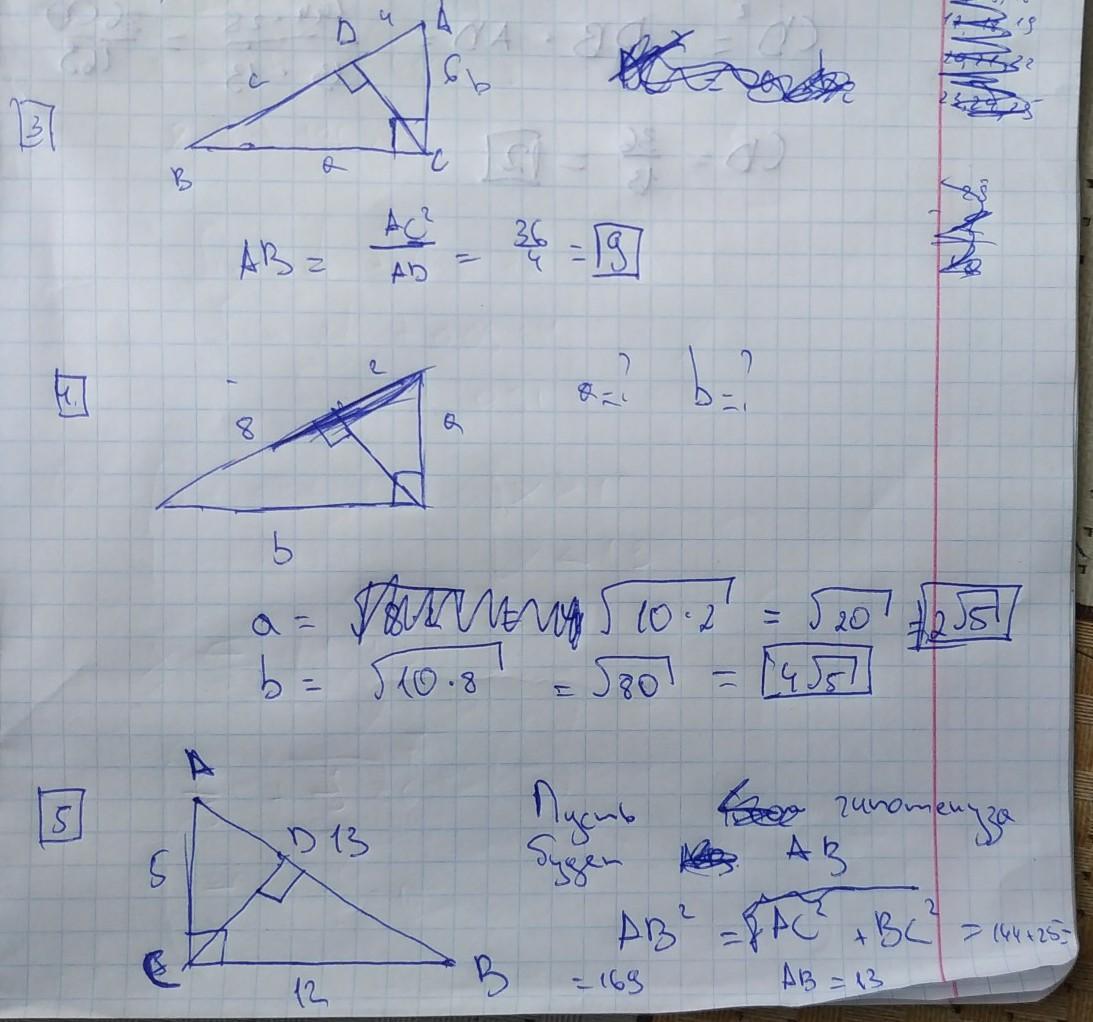 3
D 4 A
c 6 b
B a C
AB = AC² / AD = 36/4 = 9
4.
2
8 a
b
a = ? b = ?
a = √10·2 = √20 = 2√5
b = √10·8 = √80 = 4√5
5
A
D 13
5
C B
12
Пусть гипотенуза
будет AB
AB² = √AC² + BC² = 144+25=
= 169 AB = 13